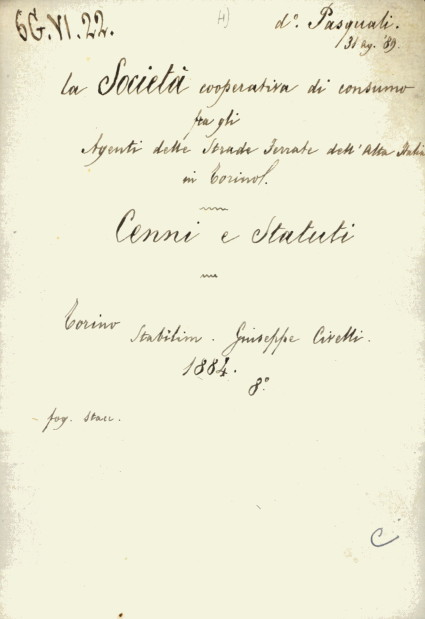 6G.VI.22.
4)
d°. Pasquali.
31 ag. '89.
La Società cooperativa di consumo
fra gli
Agenti delle Strade Ferrate dell'Alta Italia
in Torino.
Cenni e Statuti
Torino
Stabilim. Giuseppe Civelli.
1884.
8°
fog. stacc.
C